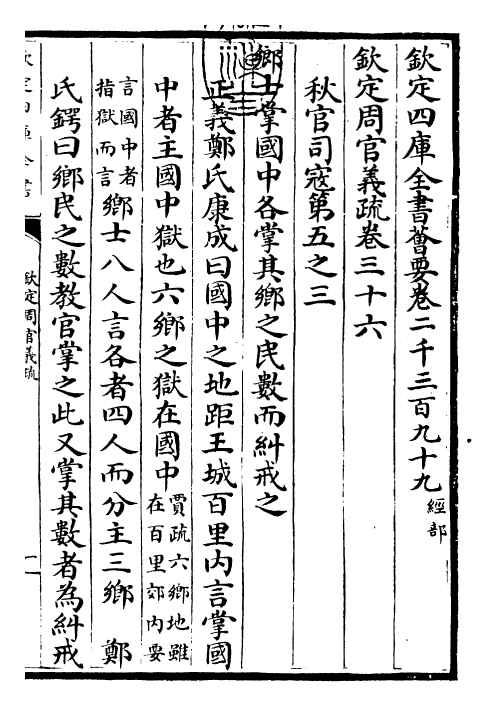 欽定四庫全書薈要卷二千三百九十九經部
欽定周官義疏卷三十六
秋官司寇第五之三
鄉士掌國中各掌其鄉之民數而糾戒之
正義鄭氏康成曰國中之地距王城百里內言掌國
中者主國中獄也六鄉之獄在國中賈疏六鄉地雖在百里郊內要
言國中者指獄而言鄉士八人言各者四人而分主三鄉 鄭
氏鍔曰鄉民之數教官掌之此又掌其數者為糾戒
欽定周官義疏
一